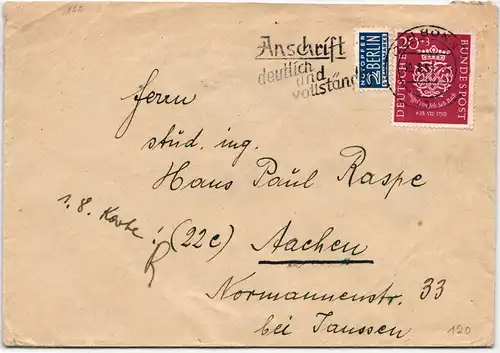 122
Anschrift
deutlich
und
vollständ
NOTOPFER
2 BERLIN
STEUERMARKE
20+3
DEUTSCHE
BUNDESPOST
Siegel von Joh. Seb. Bach
+ 28. VII. 1750
Herrn
stud. ing.
Hans Paul Raspe
1. 8. Karte
(22c) Aachen
Normannenstr. 33
bei Janssen
120